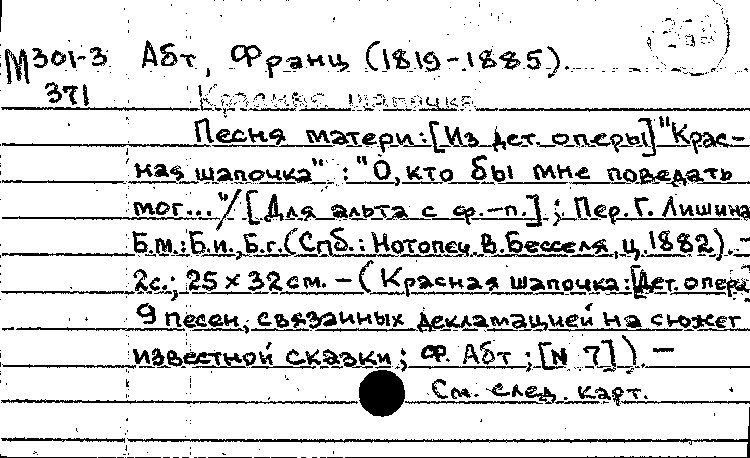 М301-3 Абт, Франц (1819-1885).
371
Красная шапочка
Песня матери:[Из дет. оперы]"Крас-
ная шапочка" : "О, кто бы мне поведать
мог..."/[Для альта с ф.-п.]; Пер. Г. Лишина
Б.м.: Б.и., Б.г. (Спб.: Нотопеч. В. Бесселя, ц. 1882). -
2с.; 25 x 32 см. - (Красная шапочка:[Дет. опера
9 песен, связанных декламацией на сюжет
известной сказки; Ф. Абт ; [N 7]). -
См. след. карт.